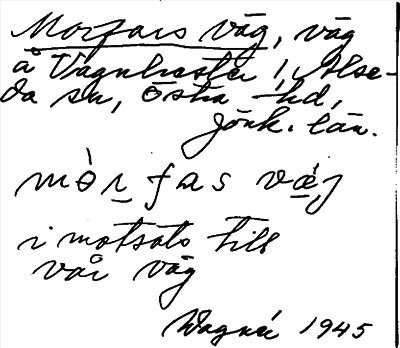 Morfars väg, väg
å Vagnhester 1, Alse-
da sn, Östra hd,
Jönk. län.
mòṟfas vǽ̱j
i motsats till
vår väg
Wagnér 1945